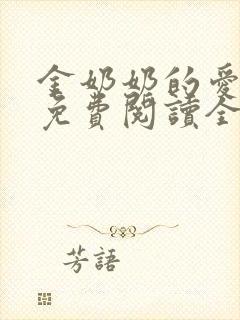 金奶奶的愛
免費閱讀全
芳語